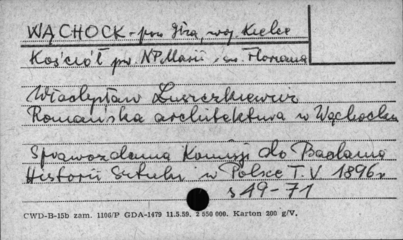 WĄCHOCK - pow Iłża, woj. Kielce
Kościół pw. NP Marii i św. Floriana
Władysław Łuszczkiewicz
Romańska architektura w Wąchocku
Sprawozdania Komisji do Badania
Historii Sztuki w Polsce T. V 1896 r
s 49-71
CWD-B-15b zam. 1100/P GDA-1479 11.5.59. 2 550 000. Karton 200 g/V.